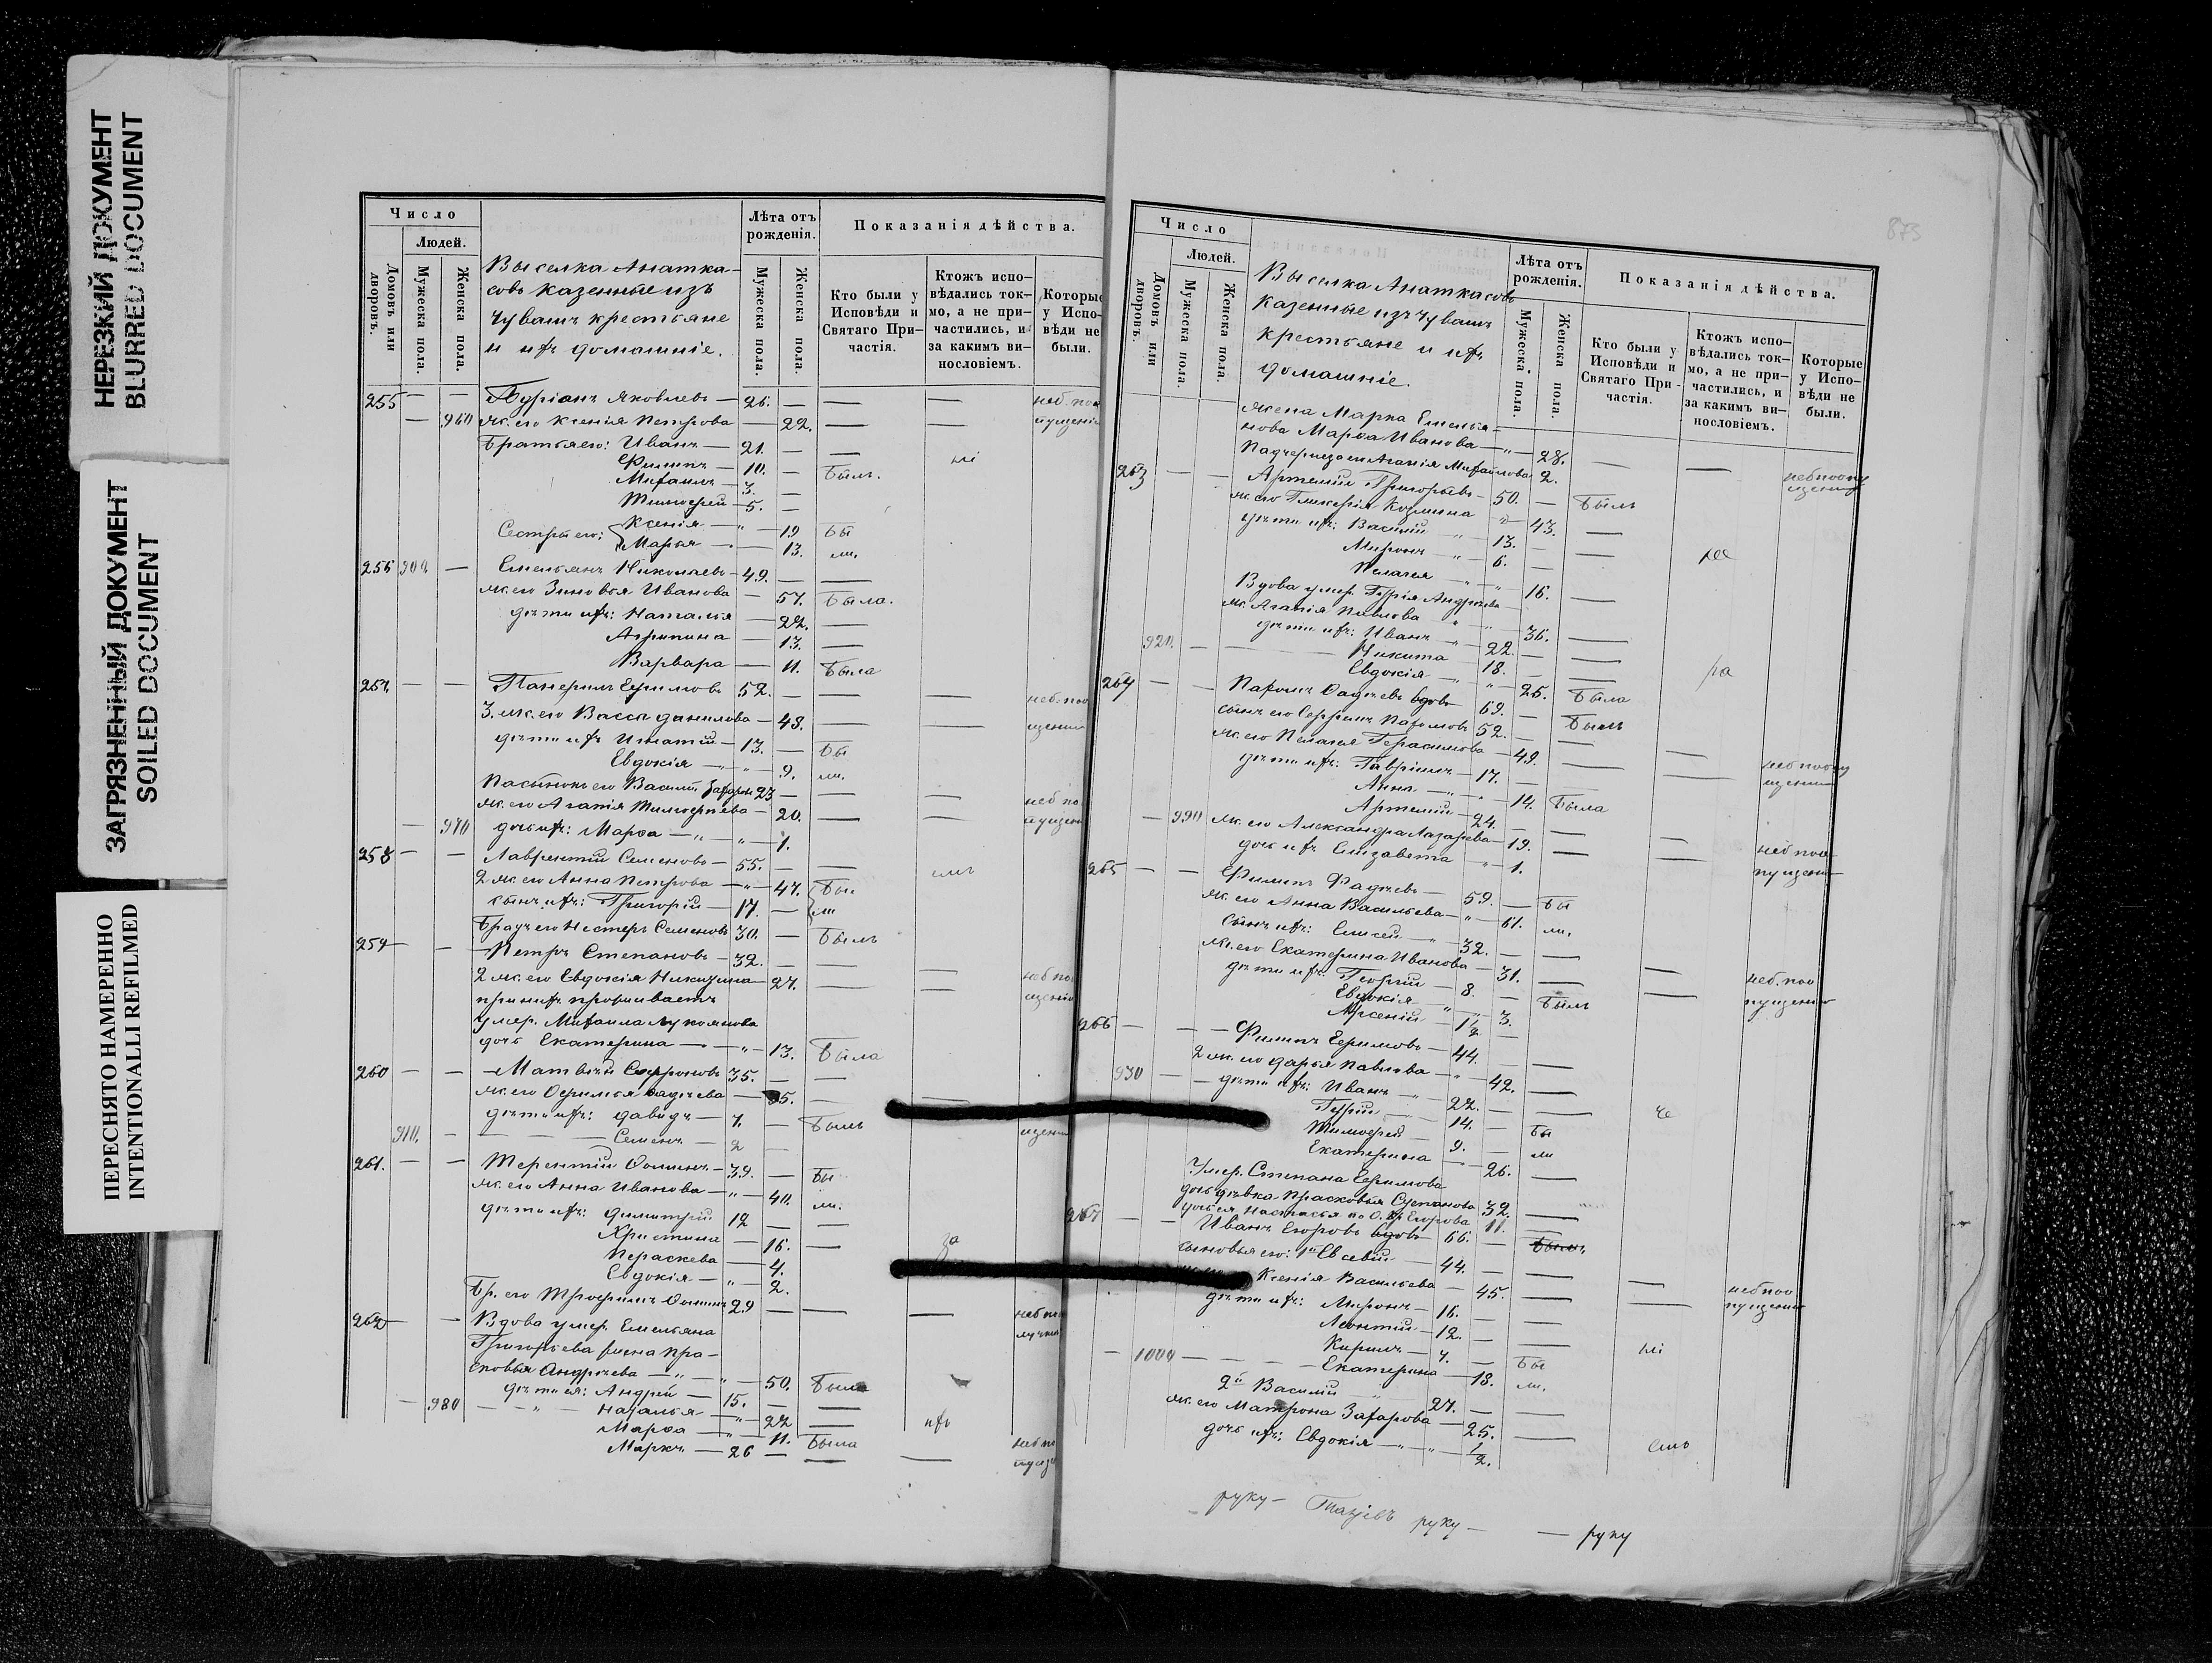 НЕРЕЗКИЙ ДОКУМЕНТ
BLURRED DOCUMENT
ЗАГРЯЗНЕННЫЙ ДОКУМЕНТ
SOILED DOCUMENT
ПЕРЕСНЯТО НАМЕРЕННО
INTENTIONALLI REFILMED
Число
Людей.
Домовъ или дворовъ.
Мужеска пола.
Женска пола.
Выселка Анаткасовъ казенные изъ
чувашъ крестьяне
и ихъ домашніе.
Лѣта отъ рожденія.
Мужеска пола.
Женска пола.
Показанія дѣйства.
Кто были у Исповѣди и Святаго Причастія.
Ктожъ исповѣдались токмо, а не причастились, и за какимъ винословіемъ.
Которые у Исповѣди не были.
255 — — Гуріанъ Яковлевъ — 26. — — —
— 960 ж. его Ксенія Петрова — 22. — —
Братья его: Иванъ — 21. — —
Филиппъ — 10. — Былъ.
Михаилъ — 3. —
Тимофей — 5. —
Сестры его: Ксенія — 19 Бы
Марья — 13. ли.
256 900 — Емельянъ Николаевъ — 49. — —
ж. его Зиновья Иванова — 57. Была.
дѣти ихъ: Наталья — 22. —
Агрипина — 13. —
Варвара — 11. Была
257. — — Панфилъ Ефимовъ 52. — — —
3. ж. его Васса Данилова — 48. — —
дѣти ихъ Игнатій — 13. — Бы
Евдокія — " — 9. ли.
Пасынокъ его Василій Захаровъ 23 — — —
ж. его Агапія Тимофеева — 20. — —
— 970 дочь ихъ: Марфа — " — " — 1.
258 — — Лаврентій Семеновъ — 55. — —
2 ж. его Анна Петрова — " — 47. Бы
сынъ ихъ: Григорій — 17. — ли
Братъ его Нестеръ Семеновъ 30. — Былъ
259 — — Петръ Степановъ — 32. — — —
2 ж. его Евдокія Никитина — 27. — —
при нихъ проживаетъ
умер. Михаила Лукоянова
дочь Екатерина — " — 13. Была
260 — — Матвѣй Софроновъ 35. — —
ж. его Офимья Фадѣева — 35. — —
дѣти ихъ: Давидъ — 7. — Былъ
910. — Семенъ — 2 —
261. — — Терентій Фоминъ — 39. — Бы
ж. его Анна Иванова — " — 40. ли.
дѣти ихъ: Димитрій 12 — —
Христина — 16. — за
Параскева — 4.
Евдокія — " — 2.
Бр. его Трофимъ Фоминъ 29 — — —
262 — Вдова умер. Емельяна
Григорьева жена Прасковья Андрѣева — " — 50. Была
дѣти ея: Андрей — 15. — —
— 980 — " — Наталья — " — 22 —
Марфа — " — 11. Была ихъ
Маркъ — 26 — — —
873
Число
Людей.
Домовъ или дворовъ.
Мужеска пола.
Женска пола.
Выселка Анаткасовъ
казенные изъ чувашъ
крестьяне и ихъ
домашніе.
Лѣта отъ рожденія.
Мужеска пола.
Женска пола.
Показанія дѣйства.
Кто были у Исповѣди и Святаго Причастія.
Ктожъ исповѣдались токмо, а не причастились, и за какимъ винословіемъ.
Которые у Исповѣди не были.
жена Марка Емельянова Марфа Иванова — " — 28. — —
Падчерица его Агапія Михайлова 2.
263 — — Артемій Григорьевъ — 50. — Былъ
ж. его Гликерія Козмина " — 43. —
дѣти ихъ: Василій — " — 13. — —
Миронъ — " — 6. —
Пелагея — " — 16. —
Вдова умер. Гурія Андрѣева
ж. Агапія Павлова — " — 36. —
дѣти ихъ: Иванъ — " — 22. — —
920. — Никита — 18. — — ра
Евдокія — " — 25. Была
264 — — Пахомъ Фадѣевъ вдовъ 69. — Былъ
сынъ его Серфинъ Пахомовъ 52. — — —
ж. его Пелагея Герасимова — 49. — —
дѣти ихъ: Гавріилъ — 17. —
Анна — " — 14. Была
Артемій — 24. — — —
— 990 ж. его Александра Лазарева — 19. — —
дочь ихъ Елизавета " — 1.
265 — — Филипъ Фадѣевъ — 59. — Бы
ж. его Анна Васильева — " — 61. ли.
сынъ ихъ: Елисей — " — 32. — — —
ж. его Екатерина Иванова — 31. — —
дѣти ихъ: Георгій — 8. — Былъ
Евдокія — " — 3.
Арсеній — 1/2 —
266 — — Филипъ Ефимовъ — 44. —
2 ж. его Дарья Павлова — " — 42. —
930 — — дѣти ихъ: Иванъ — " — 22. — —
Гурій — 14. — Бы
Тимофей — 9. — ли
Екатерина — 26. —
Умер. Степана Ефимова
дочь дѣвка Прасковья Степанова 32. —
дочь ея Настасья по О. Кр. Егорова 11. —
267 — — Иванъ Егоровъ вдовъ 66. — Былъ
сыновья его: 1й Евсевій — 44. — — —
Ксенія Васильева — 45. — —
дѣти ихъ: Миронъ — 16. — —
Леонтій — 12. — —
Кирилъ — 4. — Бы
— 1000 — Екатерина — 18. ли.
2й Василій — 27. — —
ж. его Матрона Захарова — 25. —
дочь ихъ: Евдокія — " — " — 1/2.
руку — руку — — руку